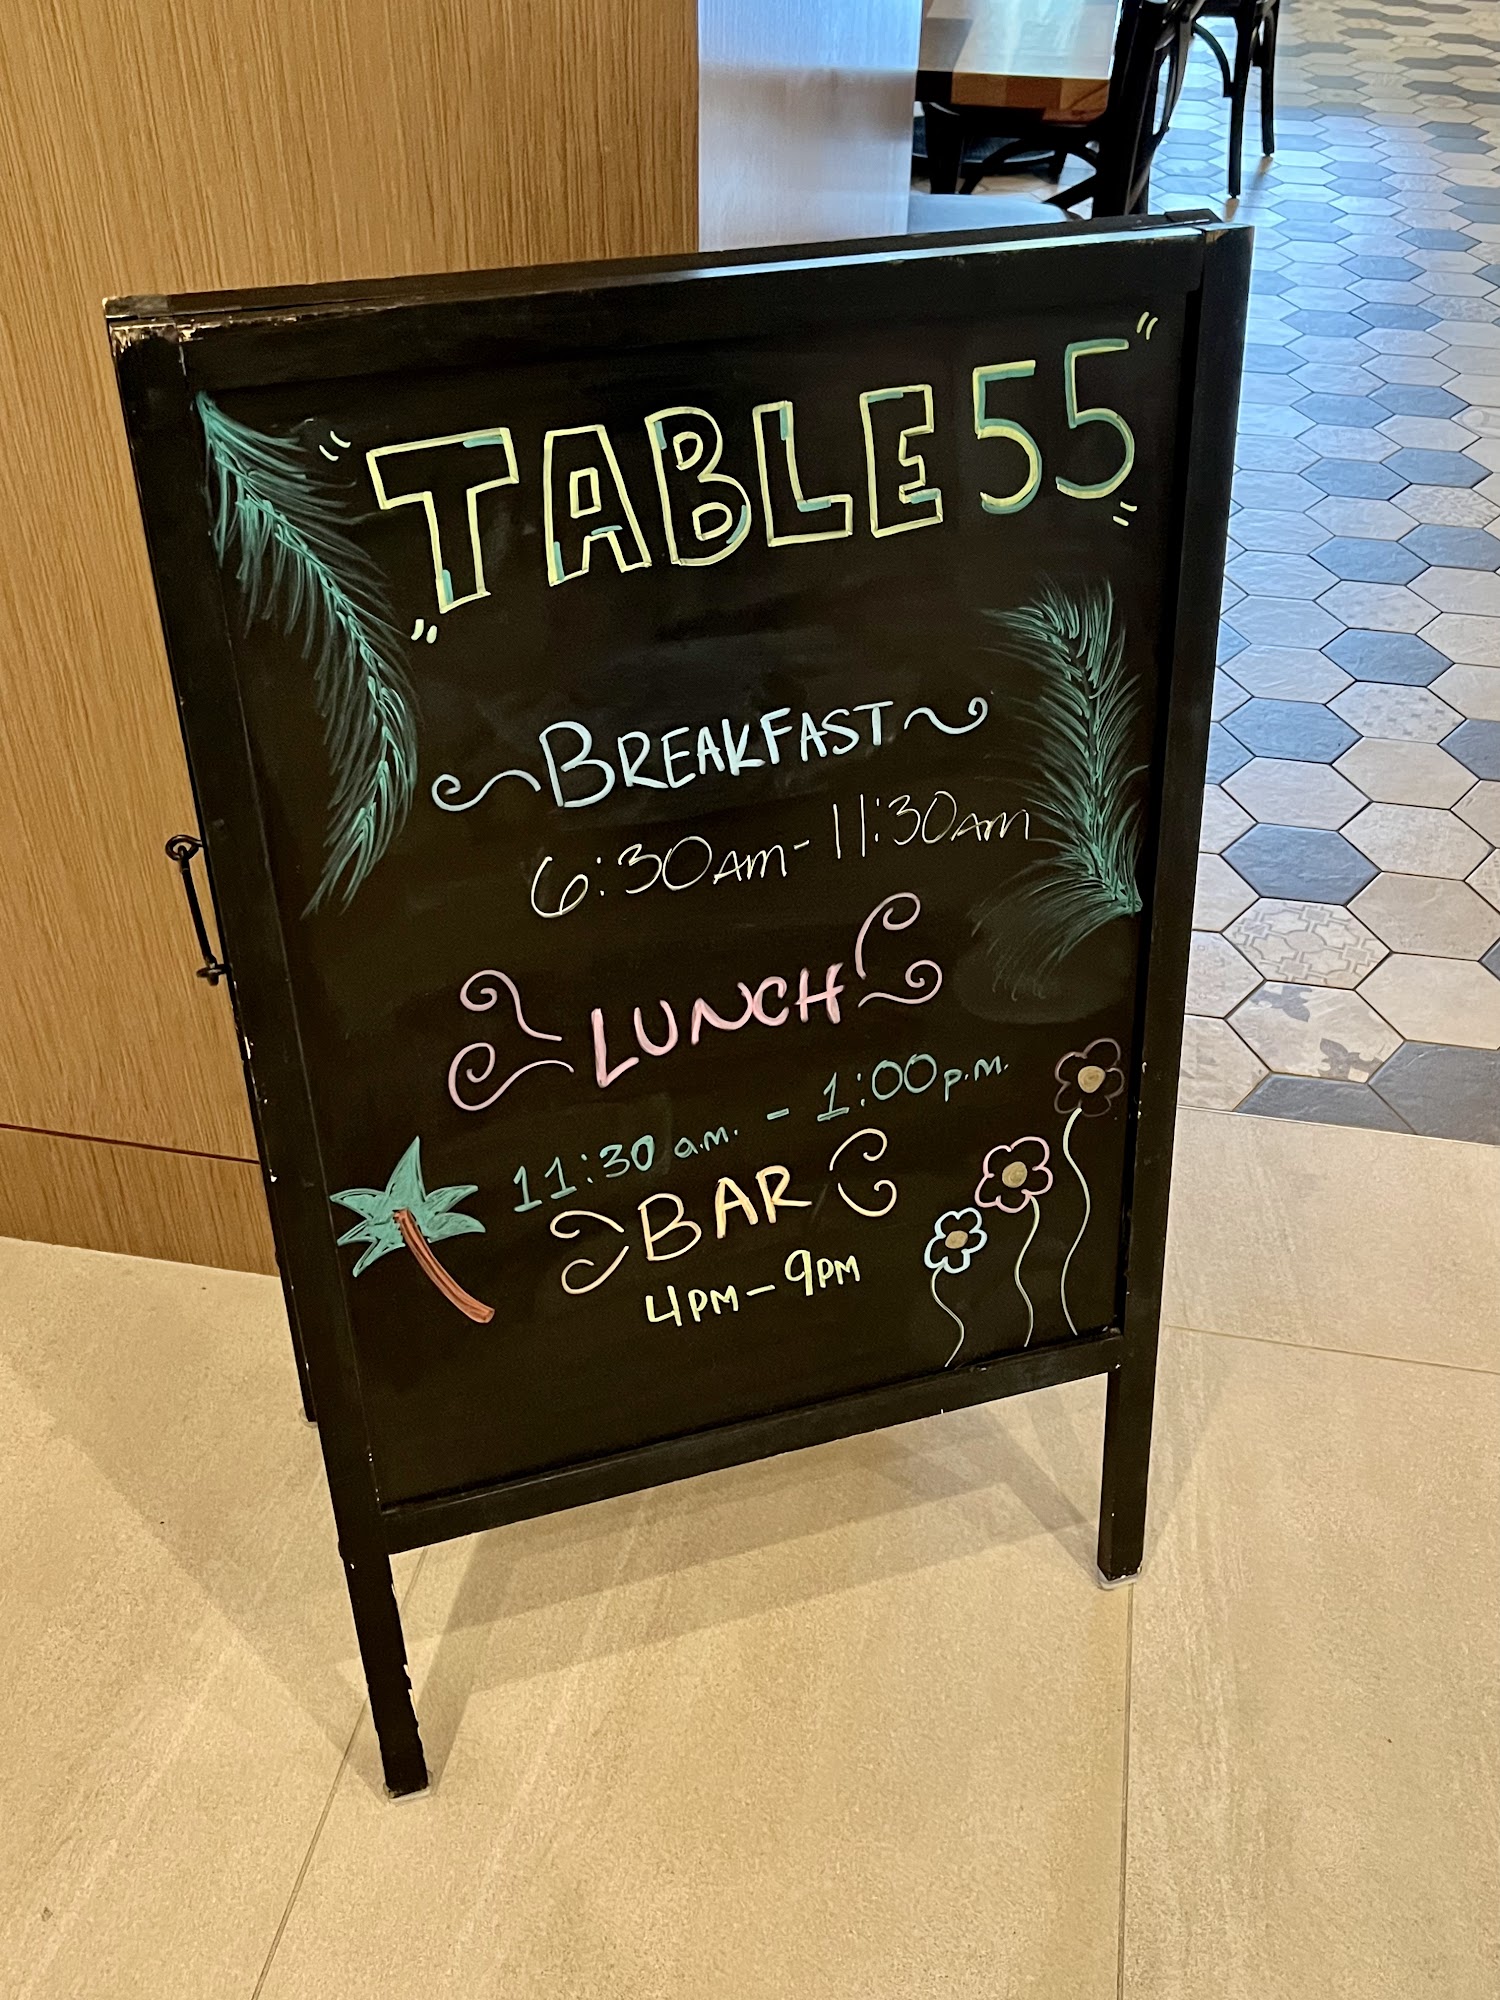 TABLE 55
BREAKFAST
6:30AM - 11:30AM
LUNCH
11:30 a.m. - 1:00 p.m.
BAR
4PM - 9PM